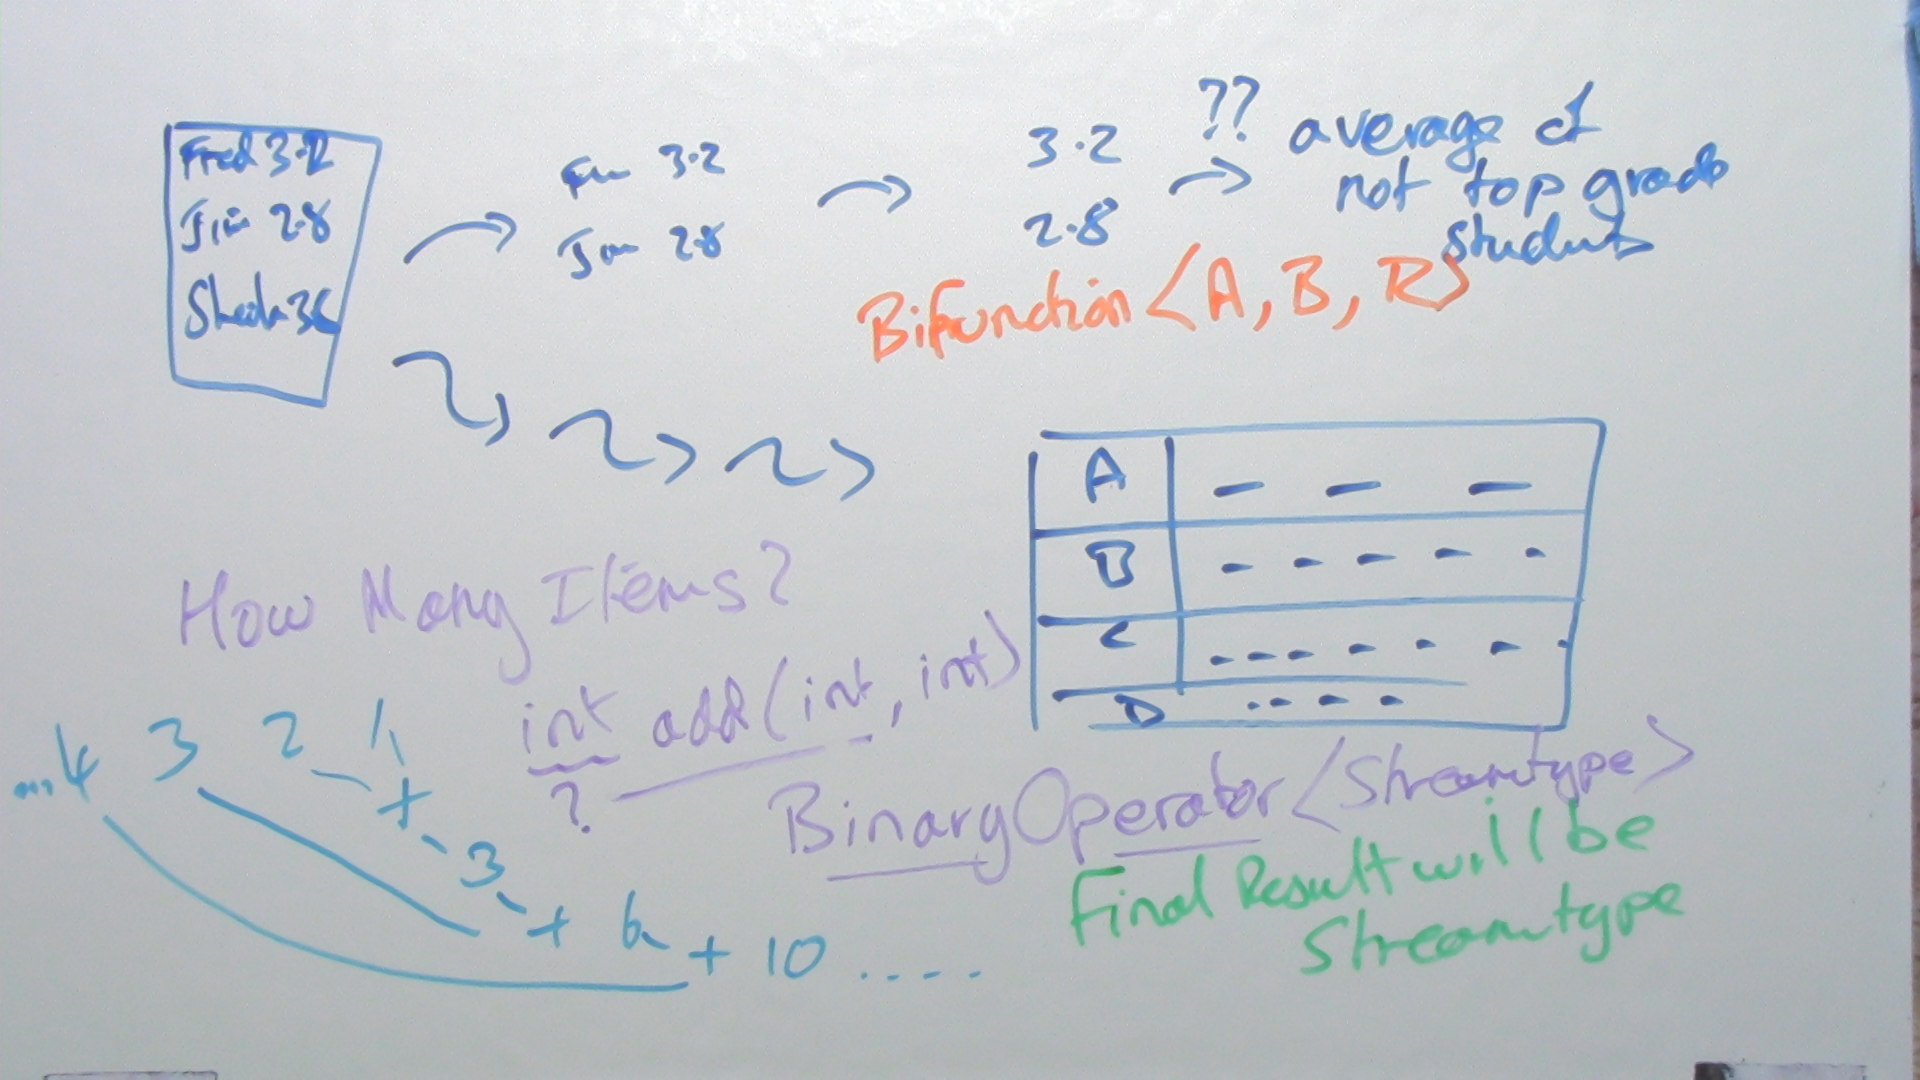 Fred 3.2
Jim 2.8
Sheila 3.6
3.2
Jim 2.8
3.2
2.8
??
average of
not top grade
students
Bifunction <A, B, R>
A
B
C
D
How Many Items?
int add(int, int)
?
...4 3 2 1
+
3
+ 6
+ 10 ....
BinaryOperator <Streamtype>
Final Result will be
Streamtype